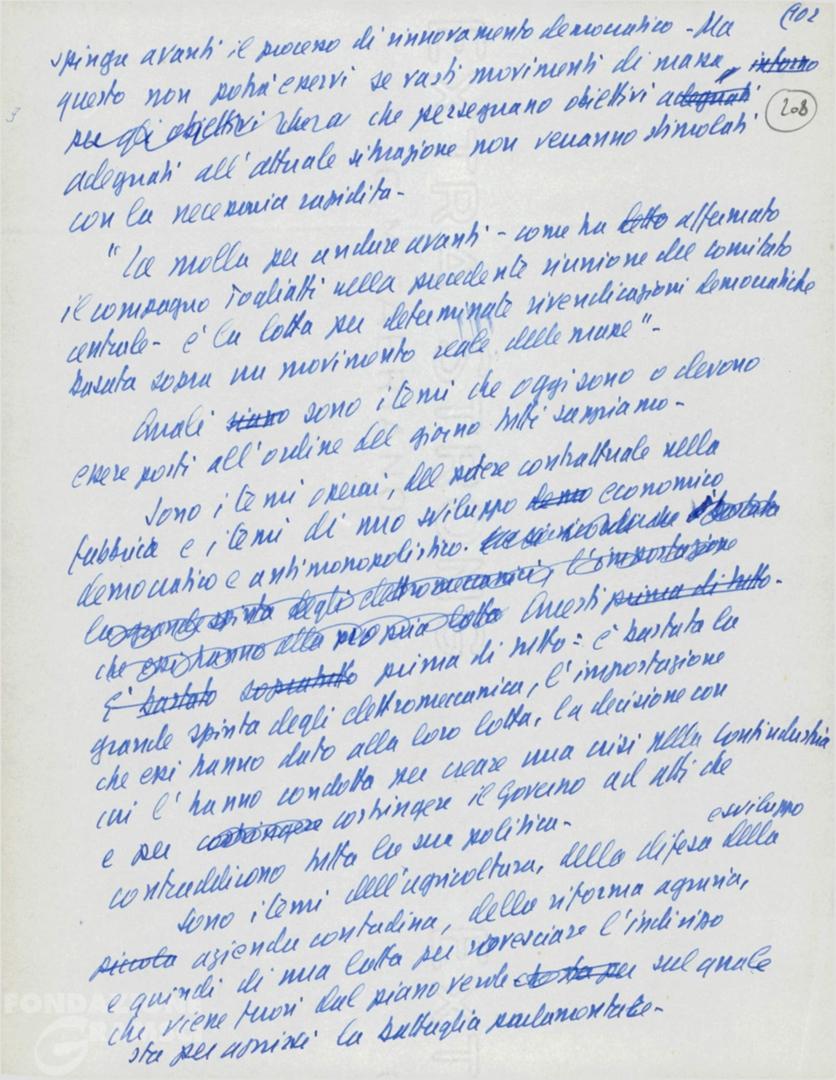 902
208
spinga avanti il processo di rinnovamento democratico - Ma
questo non potrà esservi se vasti movimenti di massa, intorno
per gli obiettivi che persegnano obiettivi adeguati
adeguati all'attuale situazione non verranno stimolati
con la necessaria rapidità -
"La molla per andare avanti - come ha detto affermato
il compagno Togliatti nella precedente riunione del comitato
centrale - è la lotta per determinate rivendicazioni democratiche
basata sopra un movimento reale delle masse" -
Quali siano sono i temi che oggi sono o devono
essere posti all'ordine del giorno tutti sappiamo -
Sono i temi operai, del potere contrattuale nella
fabbrica e i temi di uno sviluppo demo economico
democratico e antimonopolistico.
la grande spinta degli elettromeccanici, l'impostazione
che essi hanno alla propria lotta Questi prima di tutto -
È bastato sopratutto prima di tutto: è bastata la
grande spinta degli elettromeccanica, l'impostazione
che essi hanno dato alla loro lotta, la decisione con
cui l'hanno condotta per creare una crisi nella confindustria
e per costringere costringere il governo ad atti che
contraddicono tutta la sua politica -
e sviluppo
Sono i temi dell'agricoltura, della difesa della
piccola azienda contadina, della riforma agraria,
e quindi di una lotta per rovesciare l'indirizzo
che viene fuori dal piano verde sul quale
sta per aprirsi la battaglia parlamentare -
FONDAZIONE